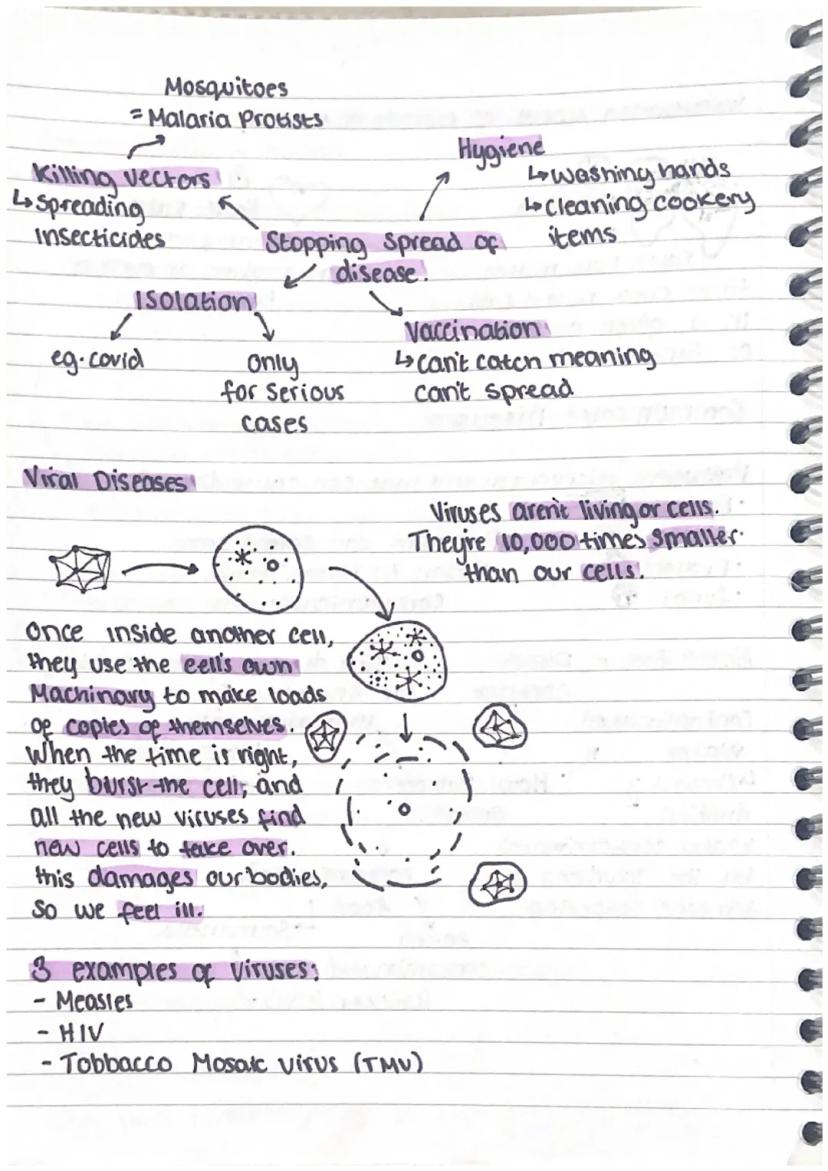 Mosquitoes
= Malaria Protists
Killing vectors
↳ Spreading
insecticides
Hygiene
↳ washing hands
↳ cleaning cookery
items
Stopping spread of
disease.
Isolation
eg. covid
only
for serious
cases
Vaccination
↳ can't catch meaning
can't spread
Viral Diseases
Viruses aren't living or cells.
They're 10,000 times smaller
than our cells.
Once inside another cell,
they use the cell's own
Machinary to make loads
of copies of themselves.
When the time is right,
they burst the cell, and
all the new viruses find
new cells to take over.
this damages our bodies,
So we feel ill.
3 examples of viruses:
- Measles
- HIV
- Tobbacco Mosaic Virus (TMV)